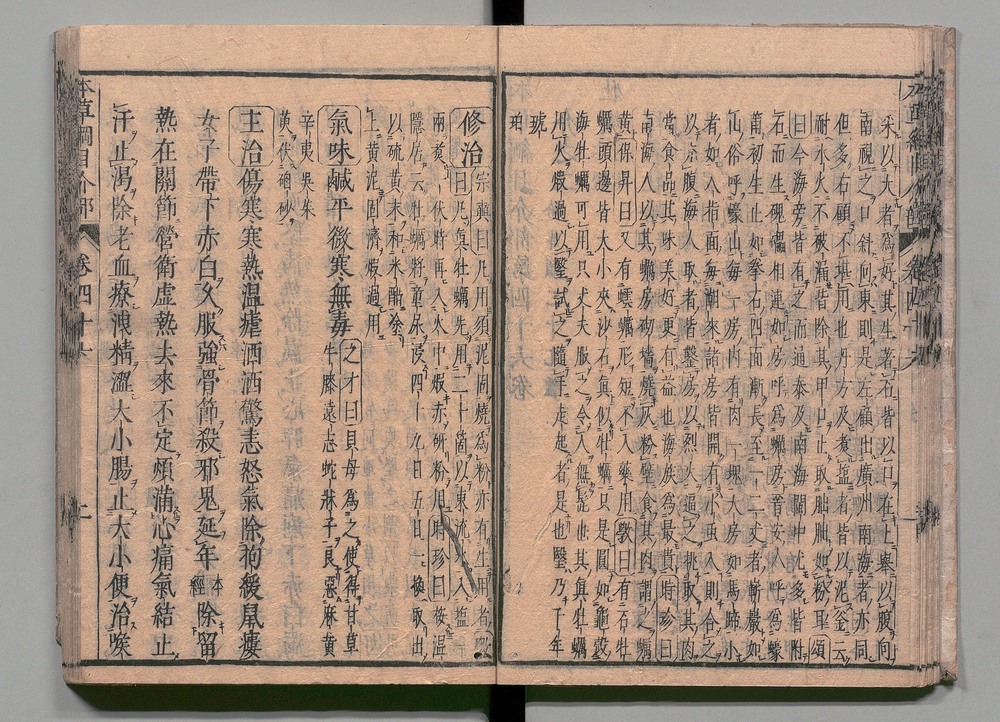 采以大者爲好其生著石皆以口在上擧以腹向
南視之口斜向東則是左顧出廣州南海者亦同
但多右顧不堪用也丹方及煑鹽者皆以泥釜云
耐水火不破漏皆除其甲口止取朏朏如粉耳頌
曰今海旁皆有之而通泰及南海閩中尤多皆附
石而生磈礧相連如房呼爲蠣房晉安人呼爲蠔
莆初生止如拳石四面漸長至一二丈者嶄巖如
山俗呼蠔山每一房内有肉一塊大房如馬蹄小
者如人指面每潮來諸房皆開有小虫入則合之
以充腹海人取者皆鑿房以烈火逼之挑取其肉
當食品其味美好更有益也海族爲最貴時珍曰
南海人以其蠣房砌墻燒灰粉壁食其肉謂之蠣
黄保昇曰又有𧑞蠣形短不入藥用斅曰有石牡
蠣頭邊皆大小夾沙石真似牡蠣只是圓如龜殻
海牡蠣可用只丈夫服之令人無髭也其真牡蠣
用火煅過以瑿試之隨手走起者是也瑿乃千年
琥珀
修治宗奭曰凡用須泥固燒爲粉亦有生用者斅
曰凡真牡蠣先用二十箇以東流水入塩一
兩煑一伏時再入火中煅赤研粉用時珍曰按温
隱居云牡蠣將童尿浸四十九日五日一換取出
以硫黄末和米醋塗
上黄泥固濟煅過用
氣味鹹平微寒無毒之才曰貝母爲之使得甘草
牛膝遠志蛇牀子良惡麻黄
辛夷吳茱
萸伏硇砂
主治傷寒寒熱温瘧洒洒驚恚怒氣除拘緩鼠瘻
女子帶下赤白久服強骨節殺邪鬼延年本經除留
熱在關節營衛虚熱去來不定煩滿心痛氣結止
汗止渴除老血療洩精澀大小腸止大小便治喉
本草綱目介部
卷四十六
二